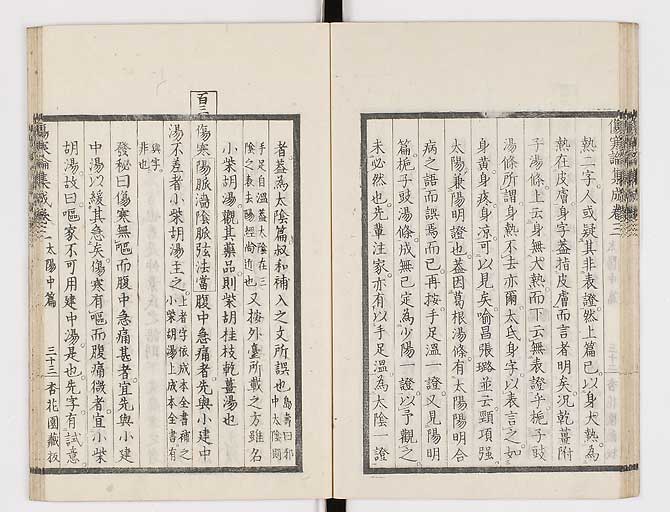 熱二字人或疑其非表證然上篇已以身大熱爲
熱在皮膚身字蓋指皮膚而言者明矣況乾薑附
子湯條上云身無大熱而下云無表證乎梔子豉
湯條所謂身熱不去亦爾太氐身字以表言之如
身黃身疼身涼可以見矣喻昌張璐並云頸項強
太陽兼陽明證也蓋因葛根湯條有太陽陽明合
病之語而誤焉而已再按手足溫一證又見陽明
篇梔子豉湯條成無已定爲少陽一證以予觀之
未必然也先輩注家亦有以手足溫爲太陰一證
者蓋爲太陰篇叔和補入之文所誤也
手足自溫蓋太陰在三
陰之表去陽經尚近也又按外臺所載之方雖名
小柴胡湯觀其藥品則柴胡桂枝乾薑湯也
百三
傷寒陽脈濇陰脈弦法當腹中急痛者先與小建中
湯不差者小柴胡湯主之
上者字依成本全書補之
小柴胡湯上成本全書有
與字
非也
發秘曰傷寒無嘔而腹中急痛甚者宜先與小建
中湯以緩其急矣傷寒有嘔而腹痛微者宜小柴
胡湯故曰嘔家不可用建中湯是也先字有試意
傷寒論集成卷三 太陽中篇 三十三 杏花園藏板
傷寒論集成卷三